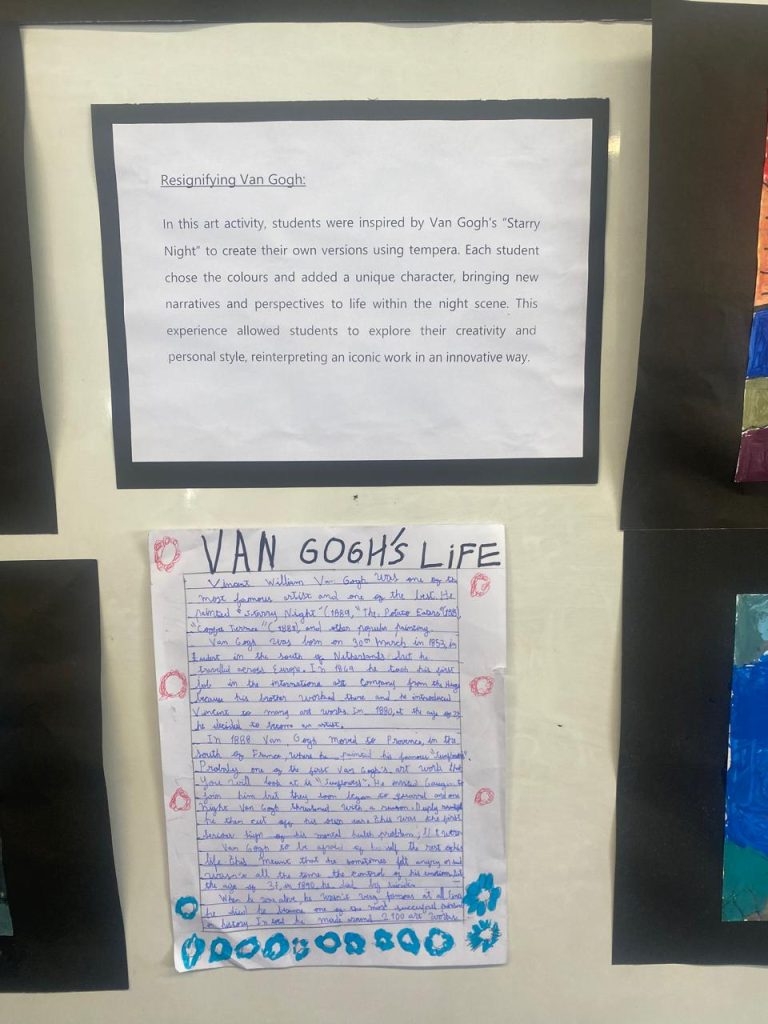 Resignifying Van Gogh:
In this art activity, students were inspired by Van Gogh's "Starry
Night" to create their own versions using tempera. Each student
chose the colours and added a unique character, bringing new
narratives and perspectives to life within the night scene. This
experience allowed students to explore their creativity and
personal style, reinterpreting an iconic work in an innovative way.
VAN GOGH'S LiFE
Vincent William Van Gogh was one of the
most famous artist and one of the best. He
painted "Starry Night" (1889, "The Potato Eaters"
(1888), and other popular painting.
Van Gogh was born on 30 March in 1853, in
in the south of Netherlands but he
travelled across Europe. In 1869 he his first
in the art Company from the
because his brother worked there and he introduced
Vincent to many art works. In 1880, at the age of
he decided to become an artist.
In 1888 Van Gogh moved to Provence, in the
south of France, where he painted his famous "Sunflowers".
Probably one of the first Van Gogh's art work that
you will look at is "Sunflowers". He invited to
join him but they soon began to quarrel and one
night Van Gogh threatened with a
he then cut off his own ear. This was the first
serious sign of his mental health problem,
Van Gogh to be afraid of the rest of his
life this meant that he sometimes felt angry or sad
wasn't all the time the control of his emotion. At
the age of 37, in 1890, he died by
When he was alive he wasn't very famous at all
he died he became one of the most successful
in history. In he made around 2100 art works